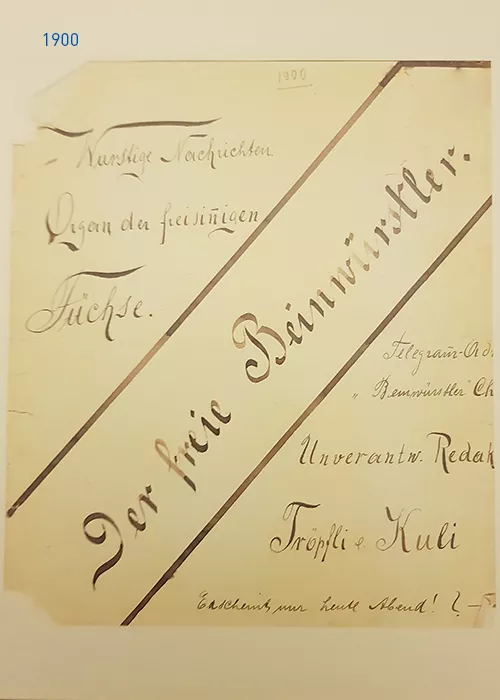 1900
1900
Wurstige Nachrichten
Organ der freisiñigen
Füchse.
Der freie Beinwürstler.
Telegram̄-Ad
„Beinwürstler" Ch
Unverantw. Redak
Tröpfli & Kuli
Erscheint nur heute Abend!